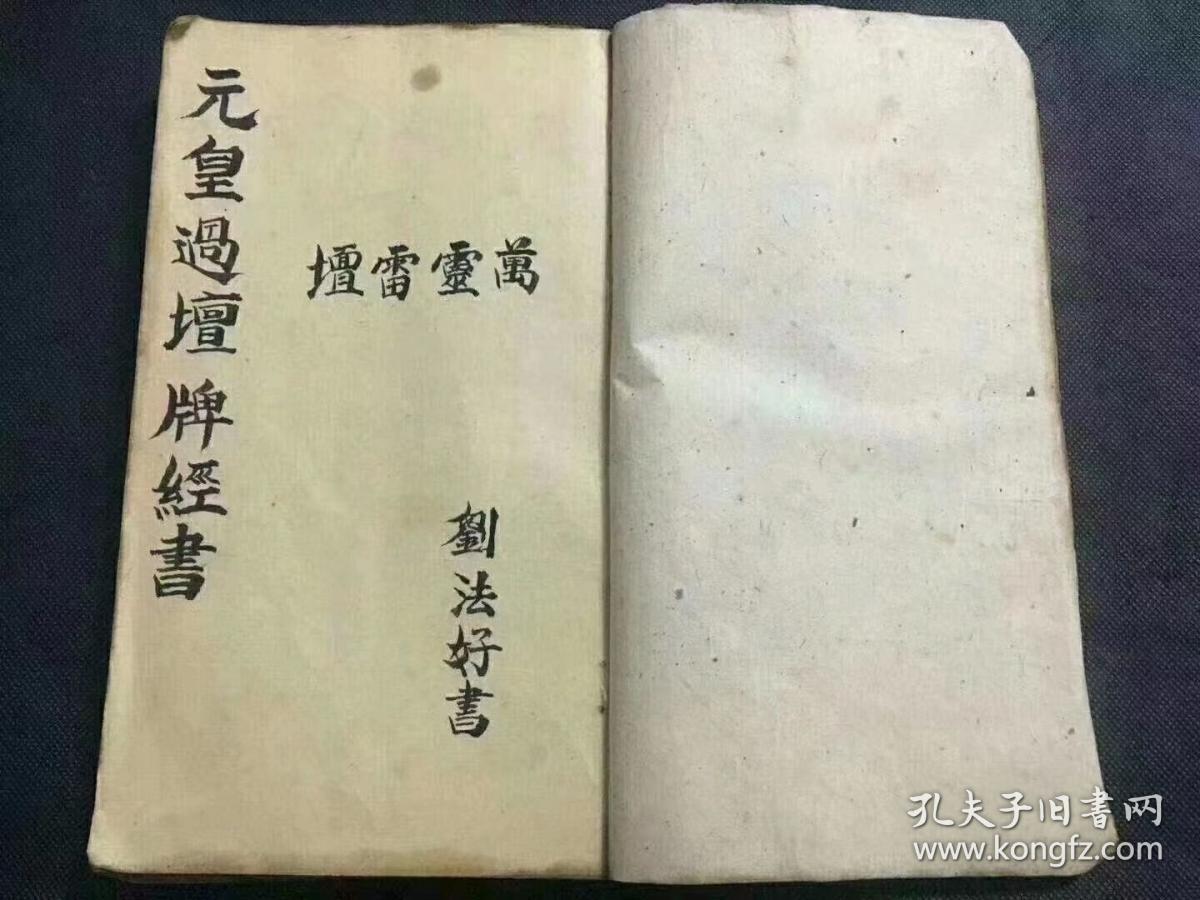 元皇過壇牌經書
萬靈雷壇
劉法好書
孔夫子旧書网
www.kongfz.com